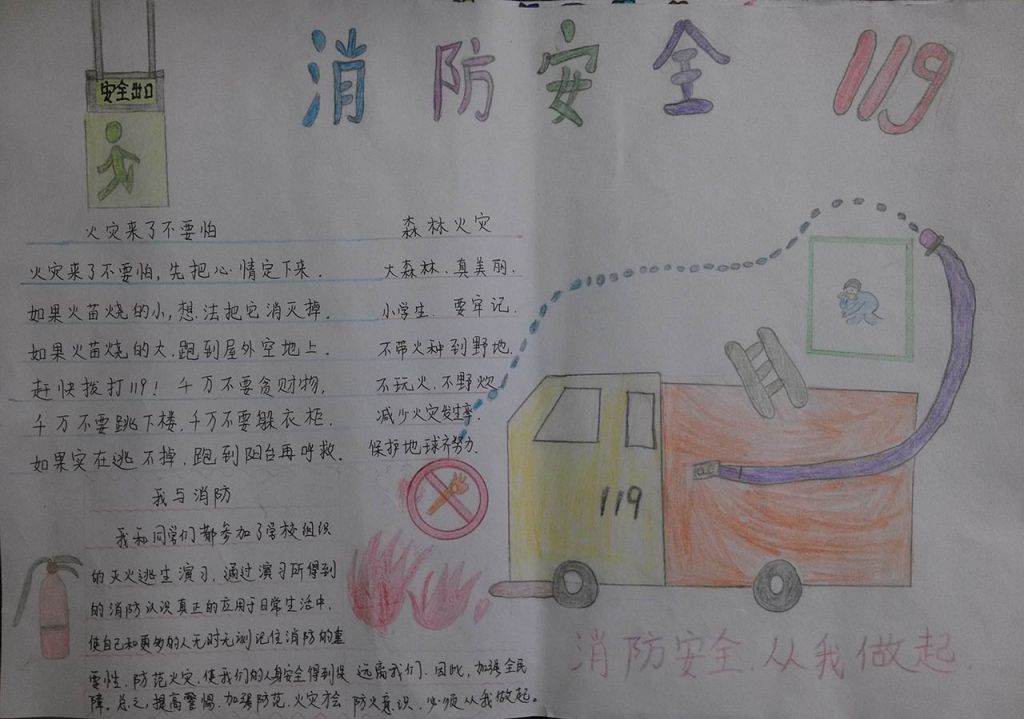 消防安全 119
安全出口
火灾来了不要怕
火灾来了不要怕,先把心情定下来.
如果火苗烧的小,想法把它消灭掉.
如果火苗烧的大.跑到屋外空地上.
赶快拨打119! 千万不要贪财物,
千万不要跳下楼.千万不要躲衣柜.
如果实在逃不掉.跑到阳台再呼救.
森林火灾
大森林.真美丽.
小学生.要牢记.
不带火种到野地.
不玩火.不野炊.
减少火灾发生率.
保护地球齐努力.
我与消防
我和同学们都参加了学校组织
的灭火逃生演习.通过演习所得到
的消防认识真正的应用于日常生活中.
使自己和更多的人无时无刻记住消防的重
要性.防范火灾.使我们的人身安全得到保
障.总之,提高警惕.加强防范.火灾会
远离我们.因此,加强全民
防火意识.必须从我做起。
119
消防安全.从我做起.